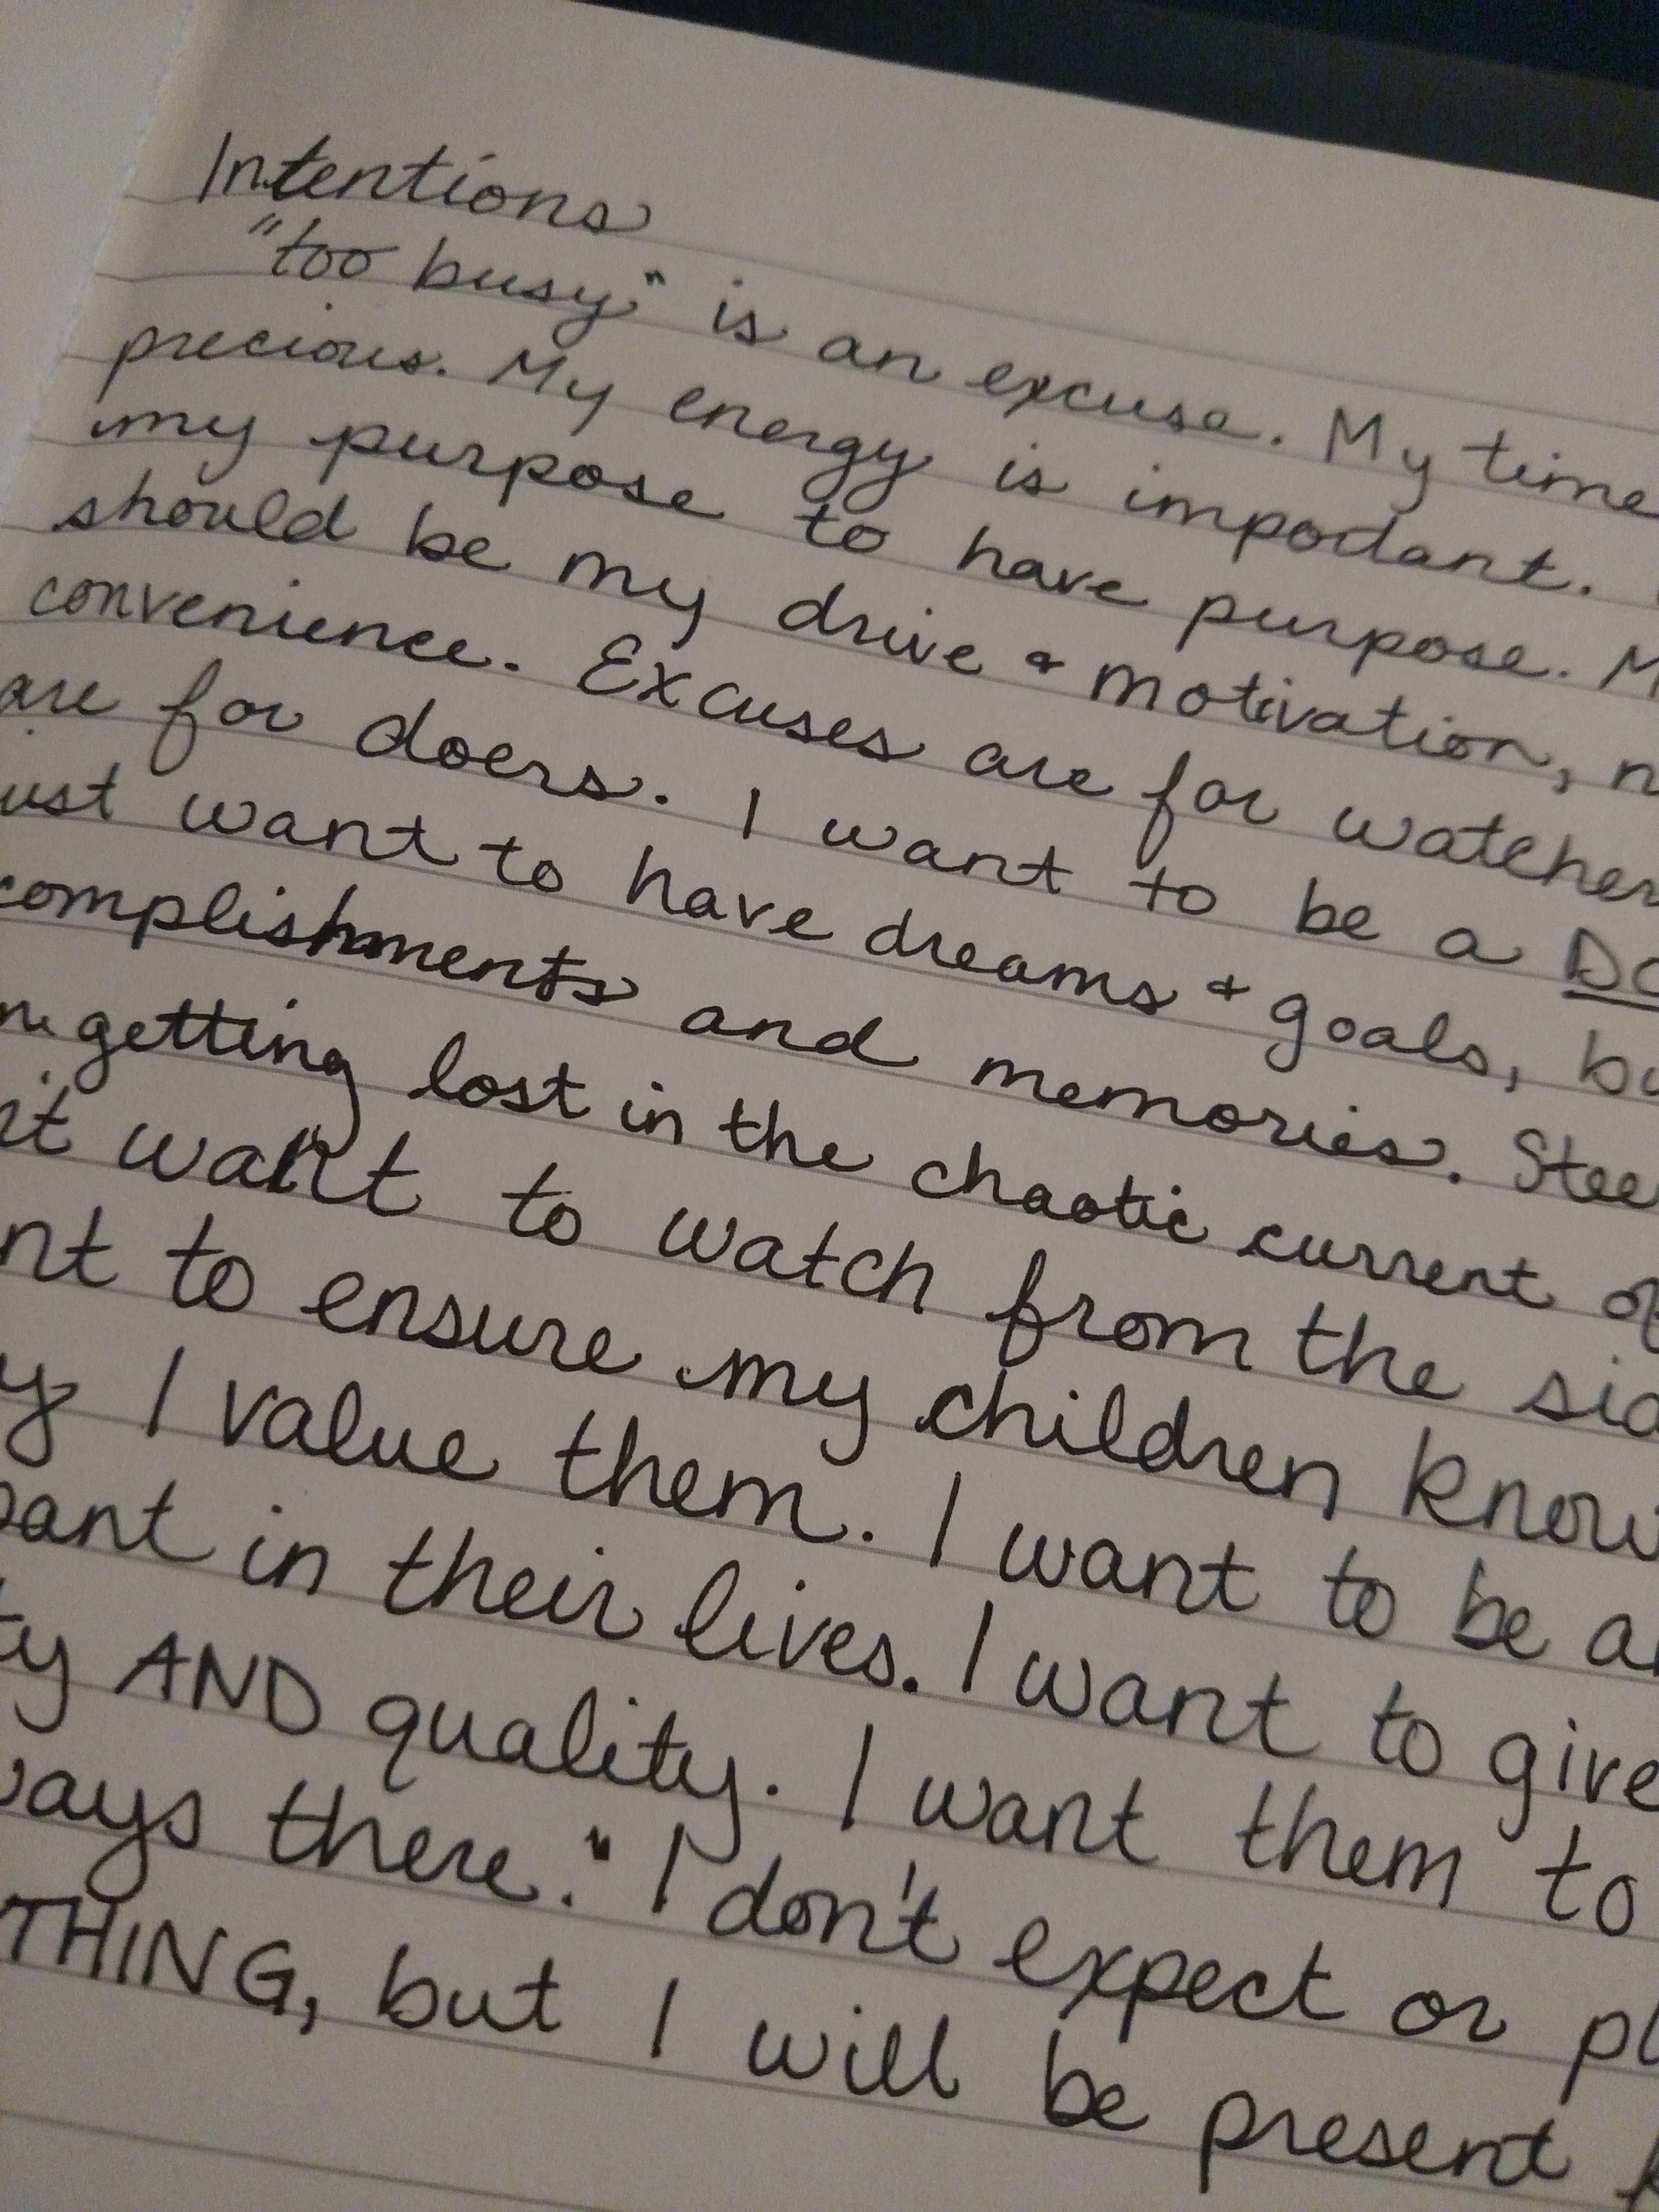 Intentions
"too busy" is an excuse. My time
precious. My energy is important.
my purpose to have purpose. M
should be my drive & motivation, n
convenience. Excuses are for watcher
are for doers. I want to be a Do
ust want to have dreams & goals, bu
complishments and memories. Stee
getting lost in the chaotic current of
nt want to watch from the sid
nt to ensure my children know
y I value them. I want to be a
pant in their lives. I want to give
ty AND quality. I want them to
ways there." I don't expect or pl
THING, but I will be present